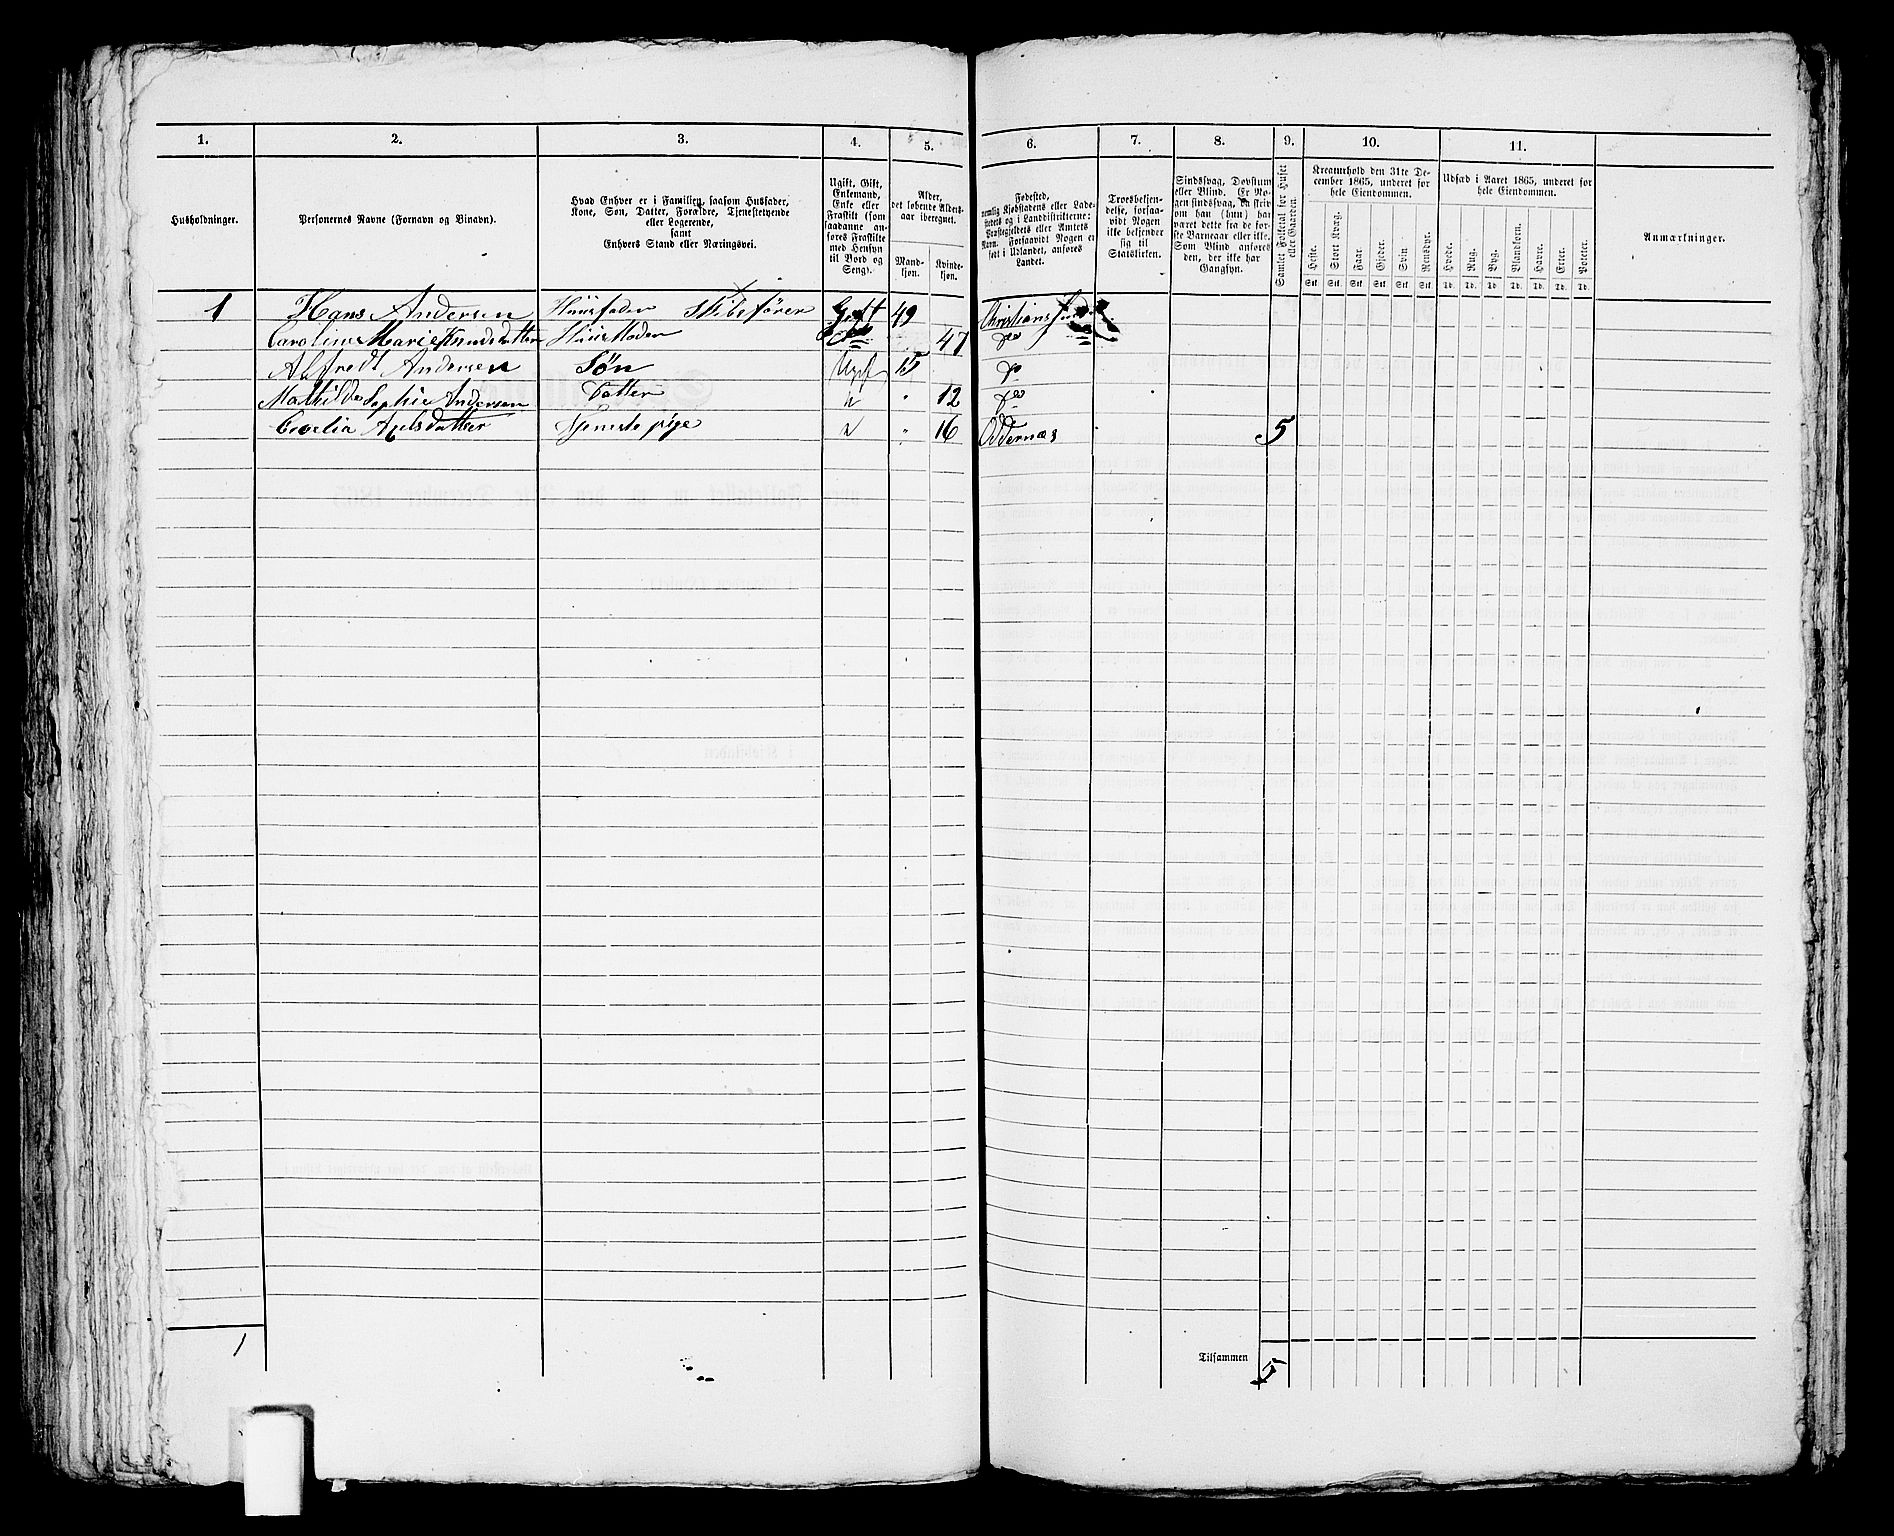 1. 2. 3. 4. 5. 6. 7. 8. 9. 10. 11.
Husholdninger.
Personernes Navne (Fornavn og Binavn).
Hvad Enhver er i Familien, saasom Husfader,
Kone, Søn, Datter, Forældre, Tjenestetyende
eller Logerende,
samt
Enhvers Stand eller Næringsvei.
Ugift, Gift,
Enkemand,
Enke eller
Fraskilt (som
saadanne an-
føres Fraskilte
med Hensyn
til Bord og
Seng).
Alder,
det løbende Alders-
aar iberegnet.
Mand-
kjøn.
Kvinde-
kjøn.
Fødested,
nemlig Kjøbstadens eller Lade-
stedets og i Landdistrikterne:
Præstegjeldets eller Amtets
Navn. Forsaavidt Nogen er
født i Udlandet, anføres
Landet.
Troesbekjen-
delse, forsaa-
vidt Nogen
ikke bekjender
sig til
Statskirken.
Sindssvag, Døvstum
eller Blind. Er No-
gen sindssvag, da skriv
om han (hun) har
været dette fra de før-
ste Barneaar eller ikke.
Som Blind anføres
den, der ikke har
Gangsyn.
Samlet Folketal for Huset
eller Gaarden.
Kreaturhold den 31te De-
cember 1865, underet for
hele Eiendommen.
Heste. Stort Kvæg. Faar. Gjeder. Svin Rensdyr.
Stk. Stk. Stk. Stk. Stk. Stk.
Udsæd i Aaret 1865, underet for
hele Eiendommen.
Hvede. Rug. Byg. Blandkorn. Havre. Erter. Poteter.
Td. Td. Td. Td. Td. Td. Td.
Anmærkninger.
1 Hans Andersen Huusfader Skibsfører Gift 49 Christianssand
Caroline Marie Knudsdatter Huusmoder 47 Do
Alfredt Andersen Søn Ugift 15 Do
Mathilde Sophie Andersen Datter " 12 Do
Axelsdatter Tjenestepige " 16 Oddernæs 5
1
Tilsammen 5